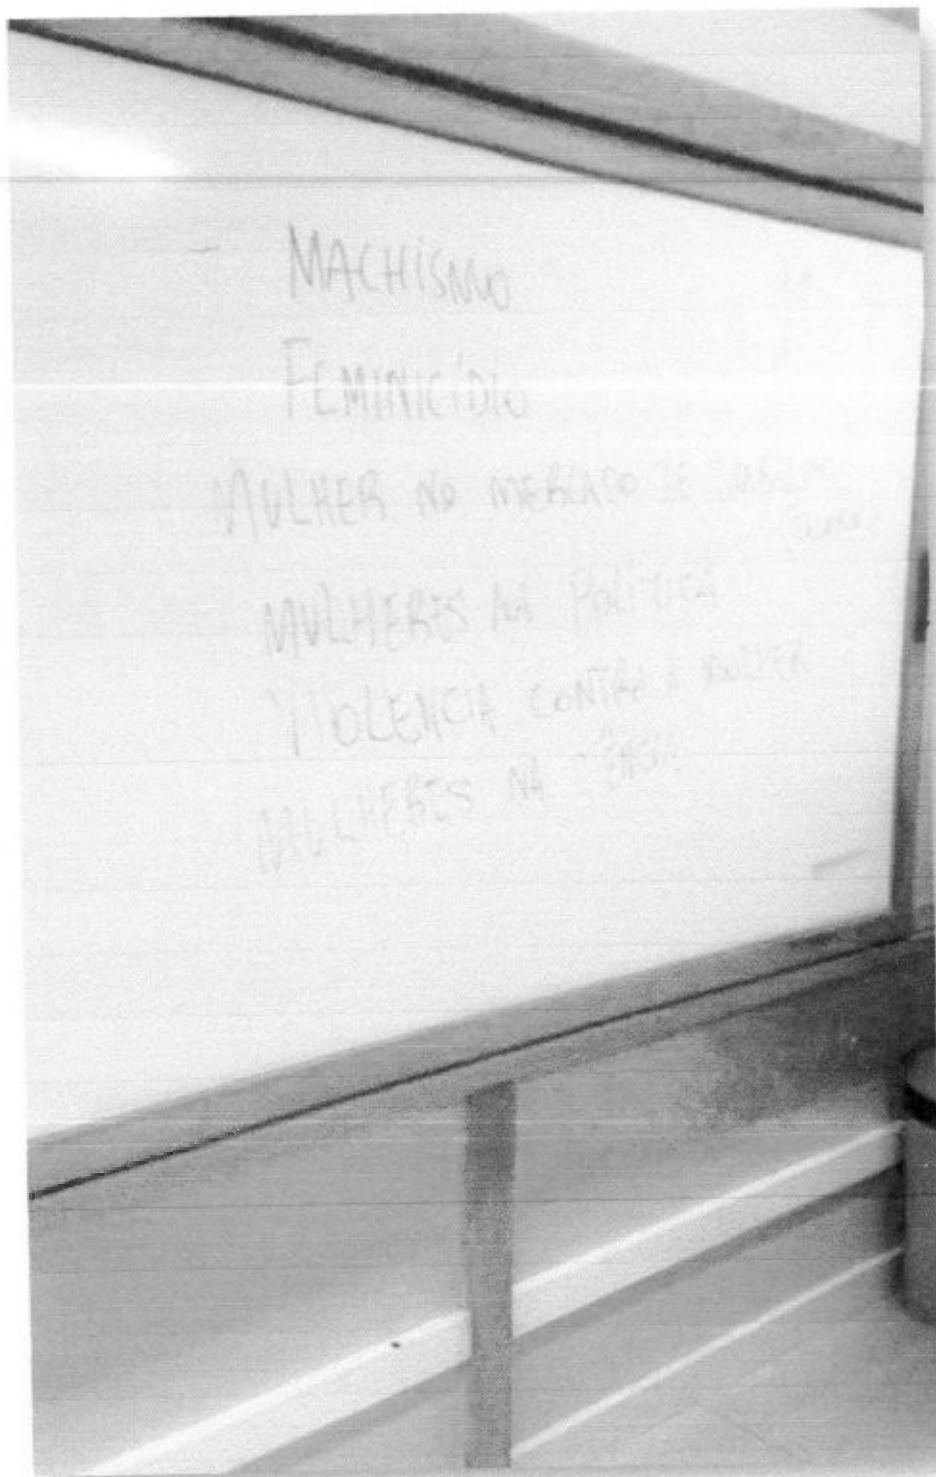 - MACHISMO
FEMINICÍDIO
MULHER NO MERCADO DE
MULHERES NA POLÍTICA
VIOLENCIA CONTRA A MULHER
MULHERES NA